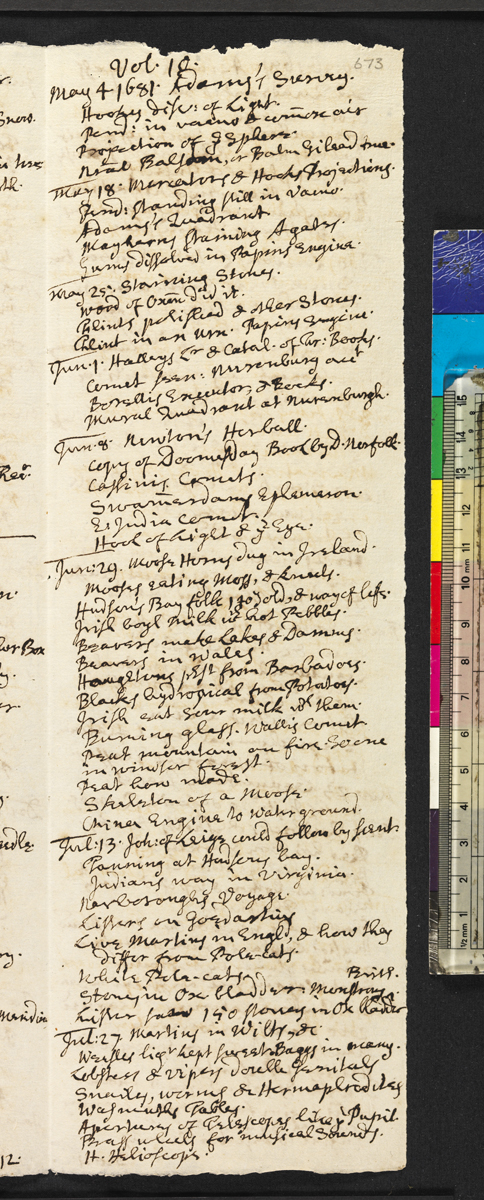 673
Vol. 18.
May 4 1681. Adams's Survey.
Hookes disc: of Light.
Pend: in vacuo & comõn air
Projection of ye Sphere.
Nral Balsom, or Balm Gilead true.
May 18. Mercators & Hooks Projections.
Pend: standing still in vacuo.
Adams's Quadrant
staining Agates.
Gums dissolved in Papins Engine.
May 25. Stayning Stones.
Wood of Oxen d'd it.
Flints polished & other Stones.
Flint in an Urn. Papins Engine.
Jun. 1. Halleys Lr & Catal. of Gr: Books.
Comet seen: Nurenburg acct
Borellis Executor, & Books.
Mural Quadrant at Nurenburgh.
Jun. 8. Newton's Herball.
Copy of Doomsday Book by D. Norfolk.
Cassinis Comets.
Swam̃erdams Ephemeron.
E: India Comet.
Hook of Light & ye Eye.
Jun: 29. Moose Horns dug in Ireland.
Mooses eating Moss, &
Hudsons Bay folk 140 y old, & way of life.
Irish boyl milk wt hot Pebbles.
Beavers make Lakes & Damms.
Beavers in Wales.
Haughtons from Barbados.
Blacks hydropical from Potatoes.
Irish eat sour milk wth them.
Burning glass. Wallis Comet
Peat mountain on fire. So one
in windsor forest.
Peat how made.
Skeleton of a Moose.
China Engine to Water ground.
Jul: 13. Joh: of Leige could follow by scent.
Tanning at Hudsons bay.
Indians way in Virginia.
Narboroughs Voyage.
Listers on Goedartius
Live Martins in Engld, & how they
differ from Pole-cats.
White Pole-cats Brith.
Stones in Ox bladder: Monstrous
Lister saw 150 stones in Ox bladder
Jul: 27 Martins in Wilts, &c
Weesles kept sweet: Baggs in many.
Lobsters & vipers double Genitals
Snailes, worms & Hermaphrodites
Wasmuths Tables.
Apertures of Telescopes like ye Pupil.
Brass wheels for musical Sounds.
H. Helioscope.